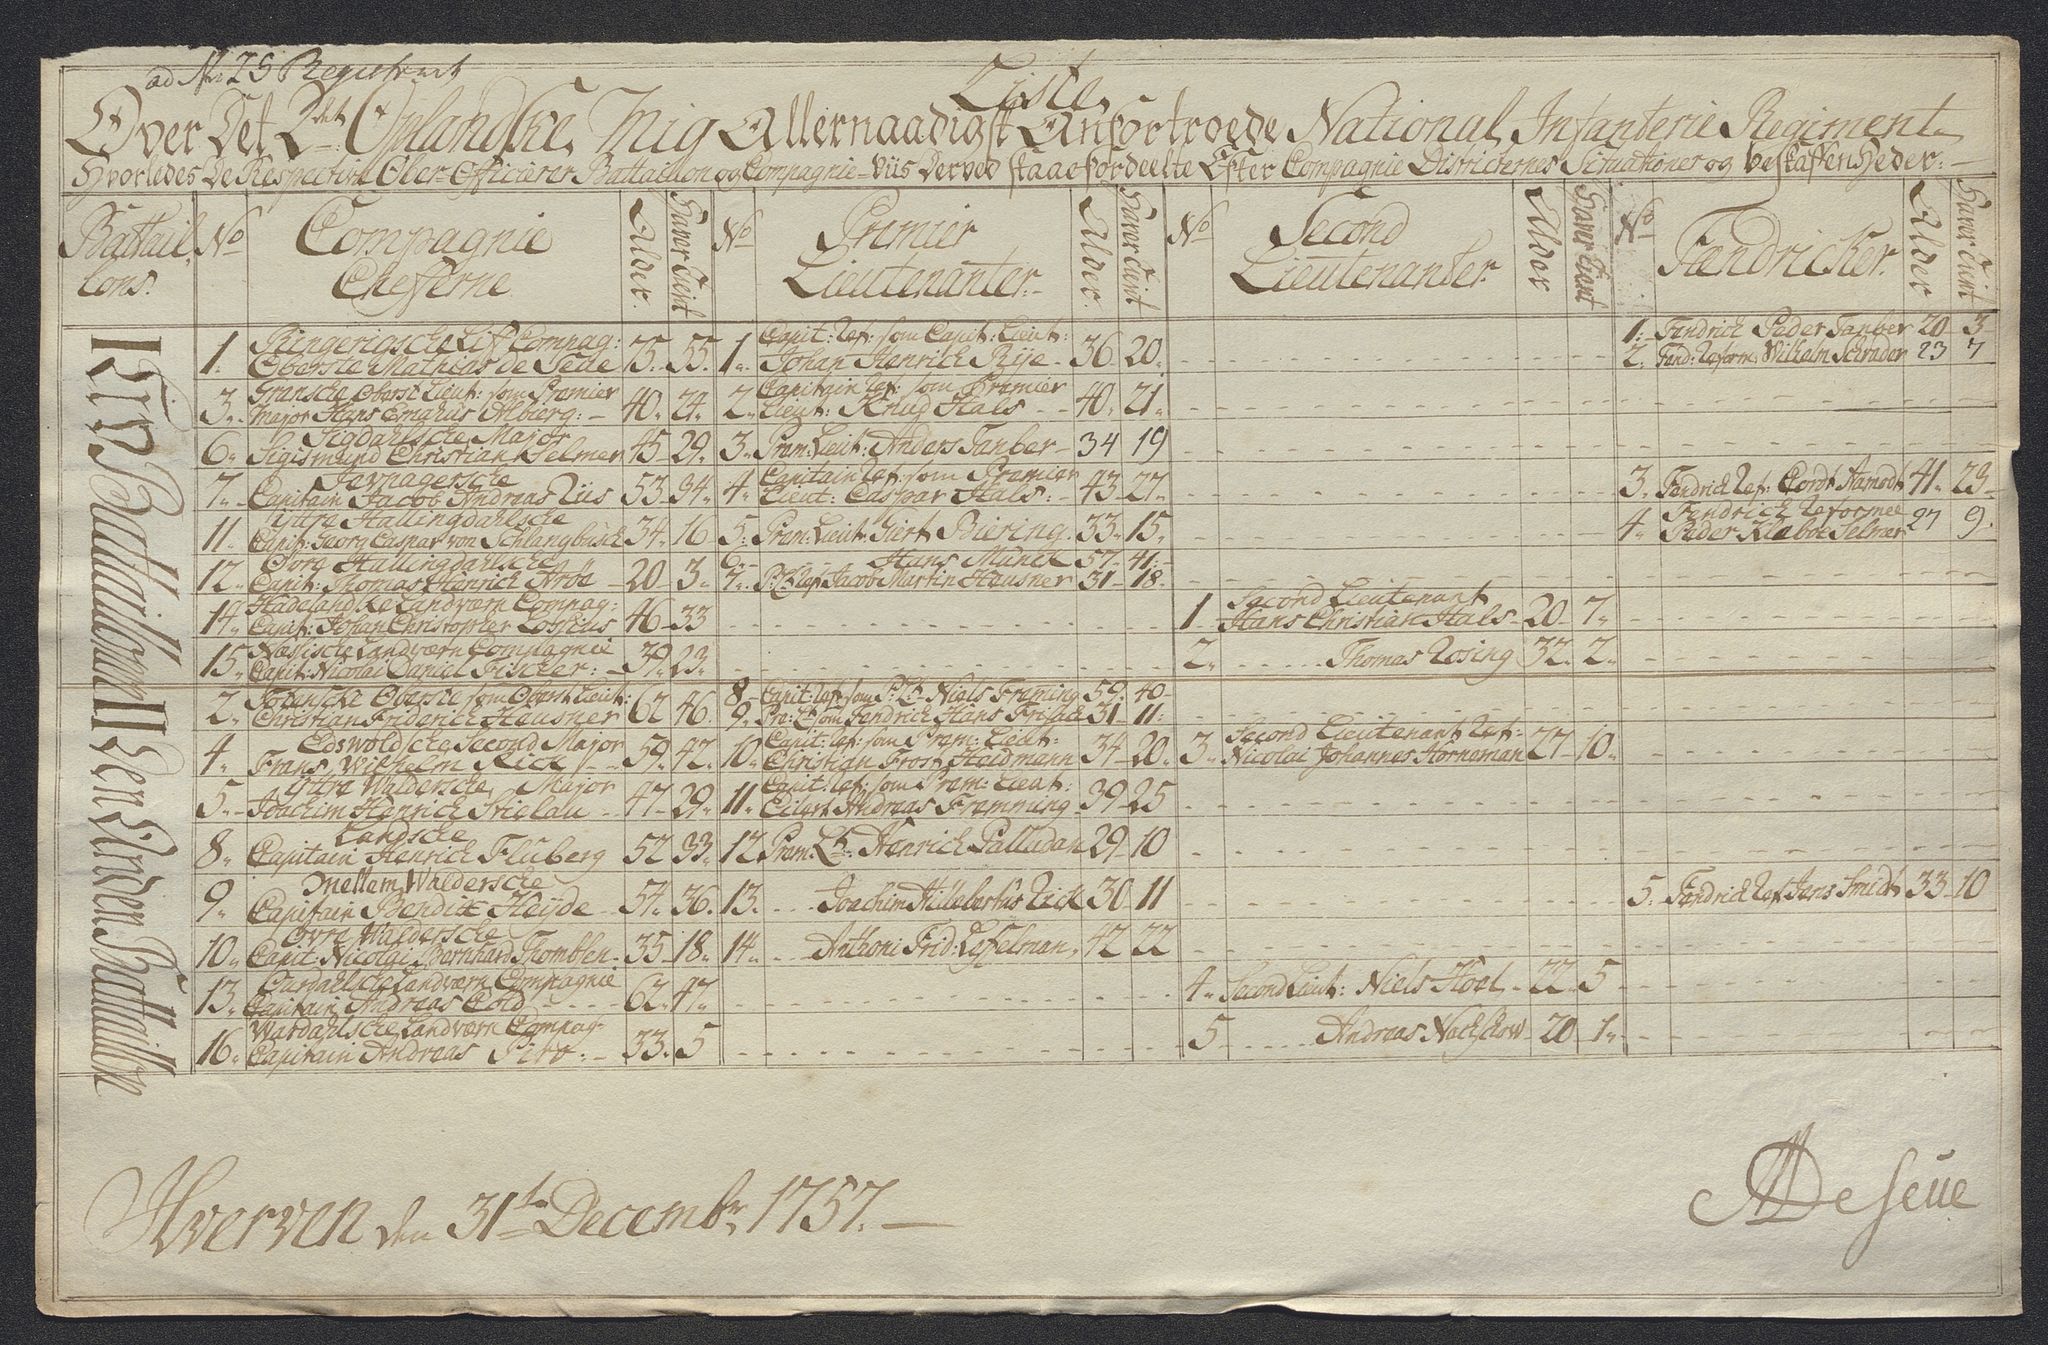 ad No 25 Registrant
Liste
Over Det 2det Oplandske Mig Allernaadigst Anfortroede National Infanterie Regiment
Hvorledes De Respective Ober Officierer Battaillon og Compagnie-Viis Derved staae fordeelte Efter Compagnie Districternes Situationer og beskaffenheder:
Battaillons. No Compagnie Chefferne Alder Haver Tient No Premier Lieutenanter Alder Haver Tient No Second Lieutenanter Alder Haver Tient No Fendricker Alder Haver Tient
Battaillonen
Den Anden Battaillon
1. Ringerigsche Liff Compag: Oberste Mathias de Seue 75. 55. 1. Capit: Ref: som Capit: Lieut: Johan Henrich Rÿe 36. 20. 1. Fendrich Peder Tanber 20 3
2. Fend: Reform: Wilhelm Schrader 23 7
3. Gransche Oberst Lieut: som Premier Major Hans Emahus Ahbierg: 40. 24. 2. Capitain Ref: som Premier Lieut: Knud Hals 40. 21.
6. Sigdahlsche Major Sigismund Christian Selmer 45. 29. 3. Prem: Lieut: Anders Tanber 34 19
7. Jevnagersche Capitain Jacob Andreas Riis 53. 34. 4. Capitain Ref: som Premier Lieut: Caspar Hals: 43. 27. 3. Fendrich Ref: Cordt Aanodt 41. 23
11. Ÿttre Hallingdahlsche Capit: Georg Caspar von Schlangbusch 34. 16 5. Prem: Lieut: Siert Biering 33. 15. 4. Fendrich Reformee Peder Klæboe Selmer 27 9.
12. Øvre Hallingdahlsche Capit: Thomas Henrich Arøe 20. 3. 6. Hans Munck 57. 41.
7. Jacob Martin Heusner 31. 18.
14. Hadelandske Landværn Compag: Capit: Johan Christopher Lossius 46. 33 1 Second Lieutenant Hans Christian Hals 20. 7.
15. Næssische Landværn Compagnie Capit: Nicolai Daniel Fischer: 39. 23. 2. Thomas Rosing 32. 2.
2. Totensche Oberste som Oberst Lieut: Christian Friderich Heusner 62 46. 8. Capit: Ref: som P: Lt Niels Fremming 59. 40
9. Pre: Lt som Fendrich Hans Frisach 31 11:
4. Edswoldsche Second Major Frans Wilhelm Rick 59. 42. 10. Capit: Ref: som Prem: Lieut: Christian Frost Heldmann 34 20. 3. Second Lieutenant Ref: Nicolai Johannes Horneman 27. 10.
5. Ÿttre Waldersche Major Joachim Henrich Stielau 47. 29. 11. Capit: Ref: som Prem: Lieut: Eilert Andreas Fremming 39. 25
8. Landsche Capitain Henrich Fluberg 52 33. 12. Prem: Lt: Henrich Palludan 29. 10
9. Mellem Waldersche Capitain Bendix Heÿde 54. 36. 13. Joachim Hillebertus Rick 30 11 5. Fendrich Ref Jens Smidt 33 10
10. Øvre Waldersche Capit: Nicolai Bernhard Thomblen 35. 18. 14. Anthoni Frid: Leffelman 42 22
13. Ourdahlsche Landværn Compagnie Capitain Andreas Cold 62. 47. 4. Second Lieut: Niels Hoel 22. 5
16. Wardahlsche Landværn Compag. Capitain Andreas Piro: 33. 5 5 Andreas Nachschow 20 1.
Hverven den 31te Decembr 1757.
MDeSeue